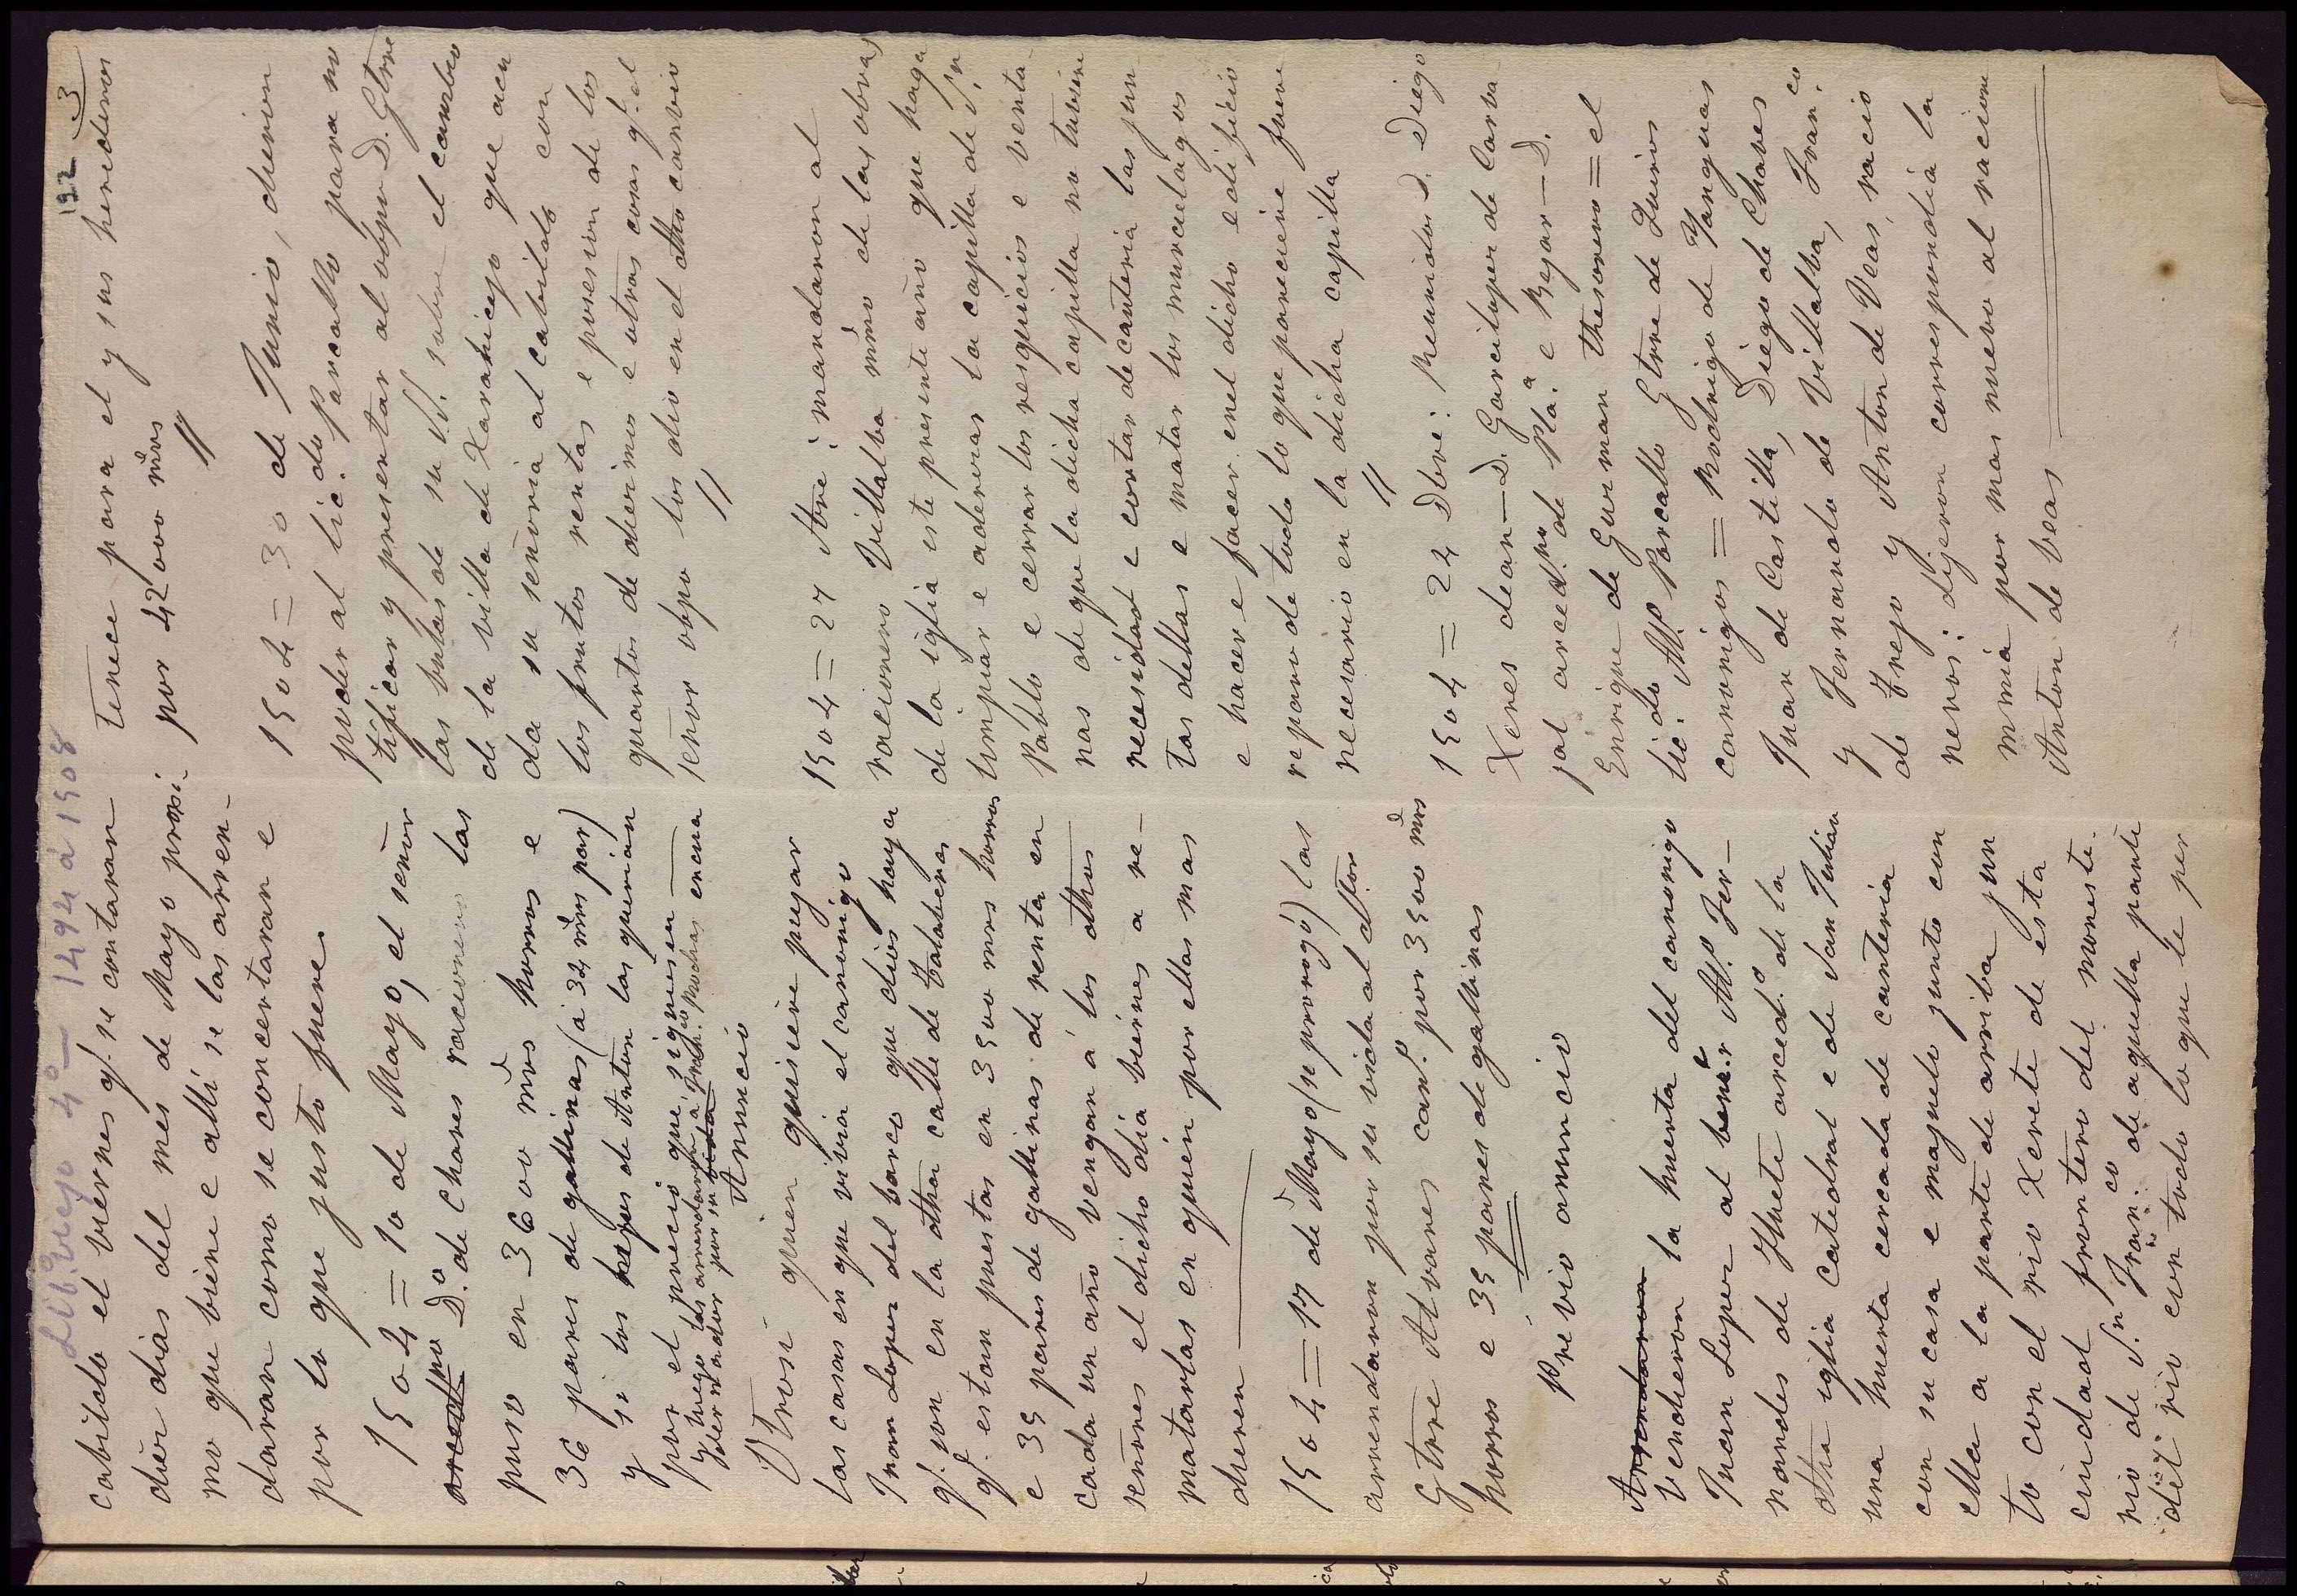 Lib.º viejo 4º — 1494 á 1508
122 3
cabildo el viernes q.e se contaran
diez dias del mes de Mayo proxi-
mo que viene e alli se las arren-
daran como se concertaran e
por lo que justo fuere
1504 = 10 de Mayo, el señor
arcedno D.º de Chaves racionero las
puso en 3600 mrs horros e
36 pares de gallinas (á 34 mrs par)
y si los hijos de Anton las querian
por el precio que siguiesen —
y luego las arrendaron á Gutr. Pochas encua
dernador por su vida
Anuncio
Otrosi quien quisiere pujar
las casas en que vivia el canonigo
Juan Lopez del barco que dios haya
q.e son en la dha calle de Talaberas
q.e estan puestas en 3500 mrs horros
e 35 pares de gallinas de renta en
cada un año vengan á los dhos
señores el dicho dia viernes a re-
matarlas en quien por ellas mas
dieren —
1504 = 17 de Mayo (se prorrogó) las
arrendaron por su vida al Dtor
Gtrre Alvares can.º por 3500 mrs
horros e 35 pares de gallinas
Previo anuncio
Arrendaron
Vendieron la huerta del canonigo
Juan Lopez al bener.e Al.º Fer-
nandes de Huete arced.º de la
dha iglia catedral e de San Julian
una huerta cercada de canteria
con su casa e majuelo junto con
ella a la parte de arriba jun
to con el rio Xerete de esta
ciudad frontero del moneste-
rio de S.n Fran.co de aquella parte
del rio con todo lo que le per
tenece para el y sus herederos
por 42000 mrs
1504 = 30 de Junio, dieron
poder al lic.do Porcallo para no
tificar y presentar al obpo D. Gtrre
las bulas de su S.S. sobre el cambio
de la villa de Xarahicejo que acu
da su señoria al cabildo con
los frutos rentas e posesion de los
quartos de diezmos e otras cosas q.e el
señor obpo los dio en el dho canvio
1504 = 27 Nvre: mandaron al
racionero Villalba mmo de las obras
de la iglia este presente año que haga
limpiar e aderezar la capilla de S.n
Pablo e cerrar los resquicios e venta
nas de que la dicha capilla no tubiere
necesidad e cortar de canteria las jun
tas dellas e matar los murcielagos
e hacer e facer enel dicho edificio
reparo de todo lo que pareciere fuere
necesario en la dicha capilla
1504 = 24 Dbre: Reunidos D. Diego
Xeres dean — D. Garcilopez de Carva
jal arcedno de Pla.a e Bejar — D.
Enrique de Guzman thesorero = el
lic.do Al.º Porcallo Gtrre de Quiros
canonigos = Rodrigo de Yanguas
Juan de Castilla, Diego de Chaves
y Fernando de Villalba, Fran.co
de Trejo y Anton de Veas, racio
neros: dijeron correspondia la
mmia por mas nuevo al racione
Anton de beas